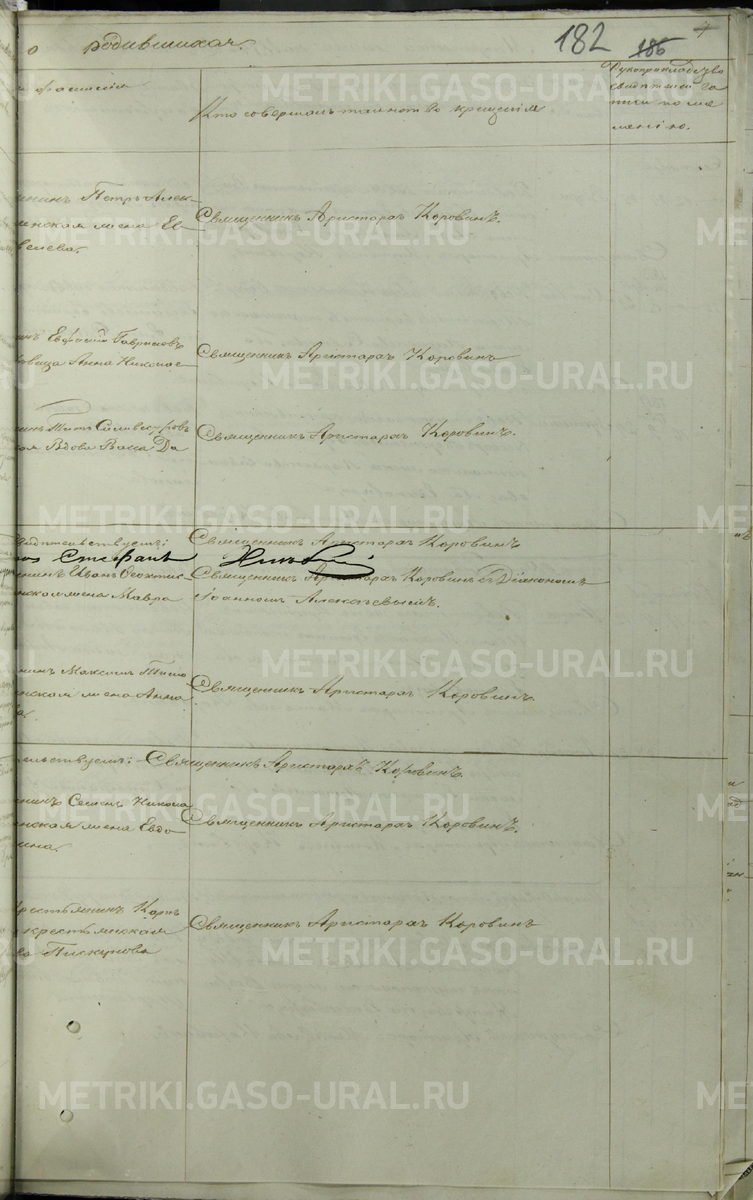 о родившихся.
182
186
4
Кто совершалъ таинство крещенія
Рукоприкладство
свидѣтелей за
писи по же
ланію.
нинъ Петръ Алек-
Священникъ Аристархъ Коровинъ.
инская жена Ев-
Евфимій Гавриловъ
вица Анна Николае-
Священникъ Аристархъ Коровинъ
Титъ Сильвестровъ
Вдова Васса Да
Священникъ Аристархъ Коровинъ.
Священникъ Аристархъ Коровинъ
Стефанъ
нинъ Иванъ Ѳеоктис
Священникъ Аристархъ Коровинъ съ Діакономъ
нская жена Мавра
Іоанномъ Алексѣевымъ.
нинъ Максимъ Тимо
нская жена Анна
Священникъ Аристархъ Коровинъ
тельствуетъ: Священникъ Аристархъ Коровинъ
нинъ Семенъ Никола
нская жена Евдо-
Священникъ Аристархъ Коровинъ.
рестьянинъ Карпъ
крестьянская
Священникъ Аристархъ Коровинъ
Пискунова
METRIKI.GASO-URAL.RU